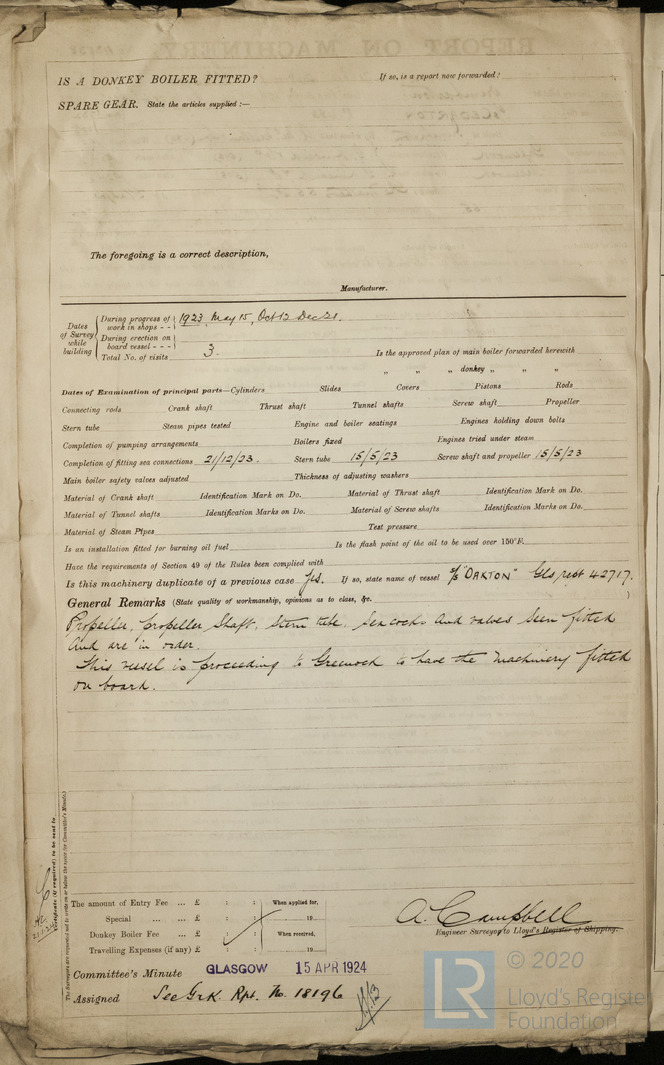 IS A DONKEY BOILER FITTED? If so, is a report now forwarded?
SPARE GEAR. State the articles supplied:—
The foregoing is a correct description,
Manufacturer.
Dates of Survey while building
During progress of work in shops - - 1923. May 15, Oct 12 Dec 21.
During erection on board vessel - - -
Total No. of visits 3.
Is the approved plan of main boiler forwarded herewith
" " " donkey " " "
Dates of Examination of principal parts—Cylinders Slides Covers Pistons Rods
Connecting rods Crank shaft Thrust shaft Tunnel shafts Screw shaft Propeller
Stern tube Steam pipes tested Engine and boiler seatings Engines holding down bolts
Completion of pumping arrangements Boilers fixed Engines tried under steam
Completion of fitting sea connections 21/12/23. Stern tube 15/5/23 Screw shaft and propeller 15/5/23
Main boiler safety valves adjusted Thickness of adjusting washers
Material of Crank shaft Identification Mark on Do. Material of Thrust shaft Identification Mark on Do.
Material of Tunnel shafts Identification Marks on Do. Material of Screw shafts Identification Marks on Do.
Material of Steam Pipes Test pressure
Is an installation fitted for burning oil fuel Is the flash point of the oil to be used over 150°F.
Have the requirements of Section 49 of the Rules been complied with
Is this machinery duplicate of a previous case Yes. If so, state name of vessel S/S "DAXTON" Gls rept 42717.
General Remarks (State quality of workmanship, opinions as to class, &c. )
Propeller, propeller shaft, stern tube, sea cocks and valves seen fitted
and are in order.
This vessel is proceeding to Greenock to have the machinery fitted
on board.
Certificate (if required) to be sent to
The Surveyors are requested not to write on or below the space for Committee's Minute.
The amount of Entry Fee ... £ : : When applied for,
Special ... ... £ : : 19
Donkey Boiler Fee ... £ : : When received,
Travelling Expenses (if any) £ : : 19
A. Campbell
Engineer Surveyor to Lloyd's Register of Shipping.
Committee's Minute GLASGOW 15 APR 1924
Assigned See Grk. Rpt. No. 18196
© 2020
LR Lloyd's Register
Foundation